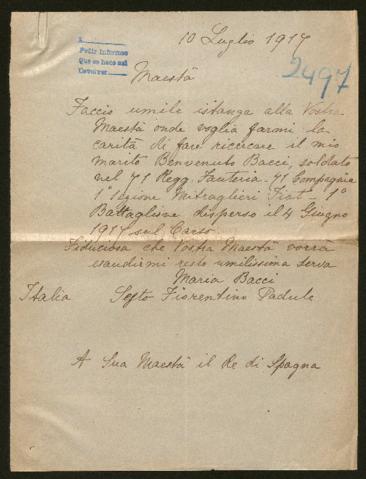 10 Luglio 1917
Pedir Informes
Que se haga así
Devolver
2497
Maestà
Faccio umile istanza alla Vostra
Maestà onde voglia farmi la
carità di fare ricercare il mio
marito Benvenuto Bacci, soldato
nel 71 Regg. Fanteria. 71 Compagnia
1ª Sezione Mitraglieri Fiat - 1º
Battaglione disperso il 4 Giugno
1917 sul Carso.
Fiduciosa che Vostra Maestà vorrà
esaudirmi resto umilissima serva
Maria Bacci
Italia Sesto Fiorentino Padule
A Sua Maestà il Re di Spagna